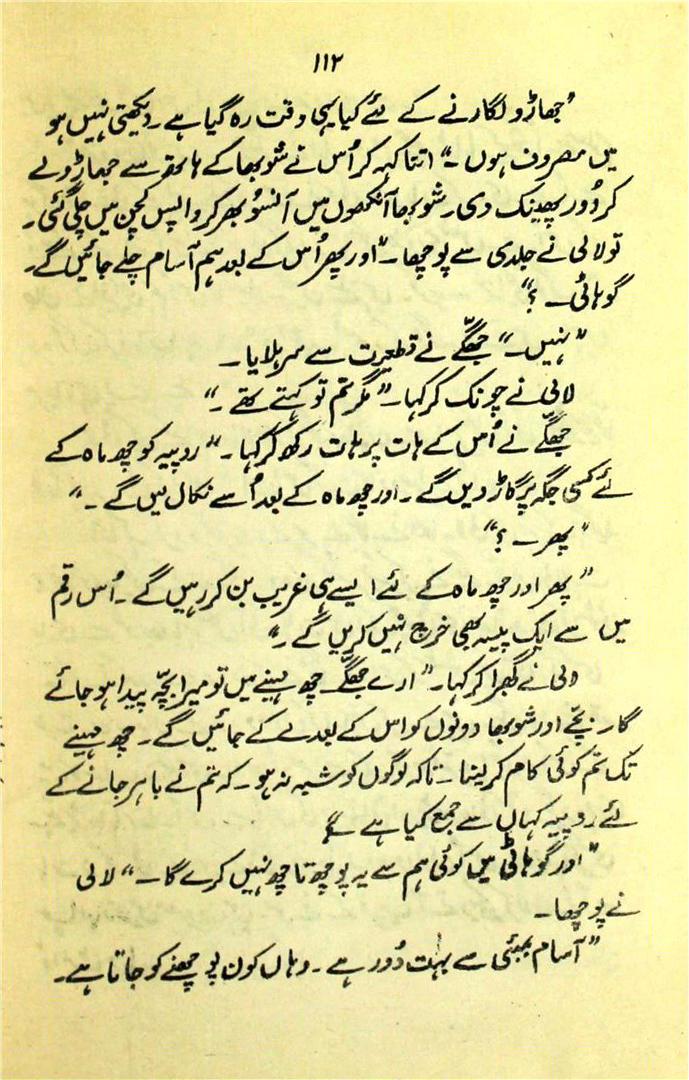 ۱۱۲
"جھاڑو لگارنے کے لئے کیا یہی وقت رہ گیا ہے ۔ دیکھتی نہیں ہو
میں مصروف ہوں ۔" اتنا کہہ کر اُس نے شوبھا کے ہاتھ سے جھاڑو لے
کر دُور پھینک دی ۔ شوبھا آنکھوں میں آنسو بھر کر واپس کچن میں چلی گئی ۔
تو لالی نے جلدی سے پوچھا ۔ "اور پھر اُس کے بعد ہم آسام چلے جائیں گے ۔
گوہاٹی ۔ ؟"
"نہیں ۔" جھگّے نے قطعیت سے سر ہلایا ۔
لالی نے چونک کر کہا ۔ "مگر تم تو کہتے تھے ۔"
جھگّے نے اُس کے ہات پر ہات رکھ کر کہا ۔ "روپیہ کو چھ ماہ کے
لئے کسی جگہ پر گاڑ دیں گے ۔ اور چھ ماہ کے بعد اُسے نکال لیں گے ۔"
"پھر ۔ ؟"
"پھر اور چھ ماہ کے لئے ایسے ہی غریب بن کر رہیں گے ۔ اُس رقم
میں سے ایک پیسہ بھی خرچ نہیں کریں گے ۔"
لالی نے گھبرا کر کہا ۔ "ارے جھگّے ۔ چھ مہینے میں تو میرا بچّہ پیدا ہو جائے
گا ۔ بچّے اور شوبھا دونوں کو اس کے بعد لے کے جائیں گے ۔ چھ مہینے
تک تم کوئی کام کر لینا ۔ تاکہ لوگوں کو شبہ نہ ہو ۔ کہ تم نے باہر جانے کے
لئے روپیہ کہاں سے جمع کیا ہے ۔"
"اور گوہاٹی میں کوئی ہم سے یہ پوچھ تاچھ نہیں کرے گا ۔" لالی
نے پوچھا ۔
"آسام بمبئی سے بہت دُور ہے ۔ وہاں کون پوچھنے کو جاتا ہے ۔